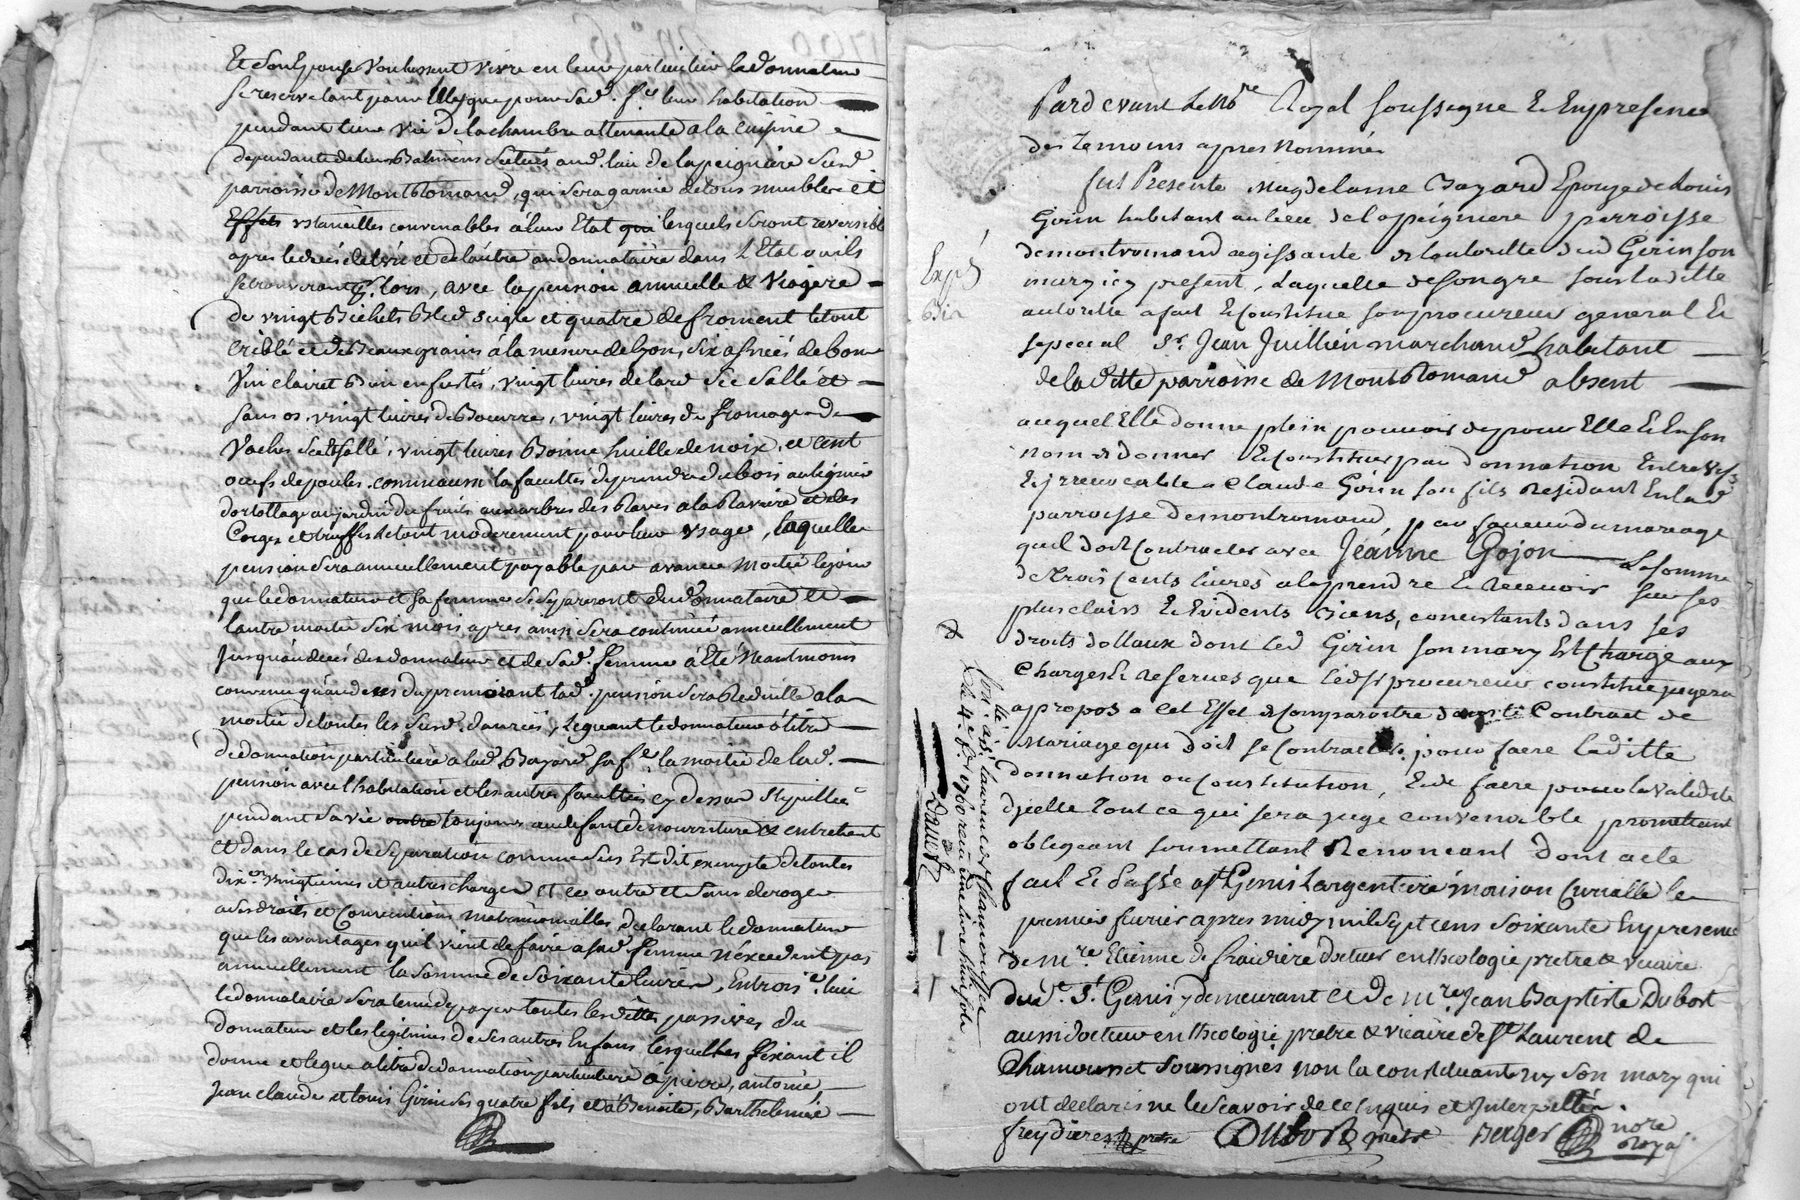 Et son Epouse Voulussent vivre en leur particulier le donnateur
se reserve tant pour luy que pour sad. fe leur habitation
pendant leur vie de la chambre attenante a la cuisine
dependante de leurs Batimens scitués aud. lieu de la peigniere susd
parroisse de Montromand, qui sera garnie de tous meubles et
Effets ustancilles convenables à leur Etat qui lesquels seront reversible
apres le decés de l'un et de l'autre au donnataire dans L'Etat ou ils
se trouveront p. lors, avec la pension annuelle & viagere
de vingt Bichets Bled seigle et quatre de froment le tout
criblé et de Beaux grains à la mesure de Lyon, six asnées de bon
Vin clairet Bien en futés, vingt livres de lard sec sallé et
sans os, vingt livres de Beurre, vingt livres de fromage de
Vaches sec et sallé, vingt livres Bonne huille de noix, et cent
oeufs de poules, comm'aussi la facultés de prendre du bois au
dortollage au jardin du fruits aux arbres des Raves a la Raviere et des
Corges et truffes le tout moderement pour leur usage, laquelle
pension sera annuellement payable par avance moitié le jour
que le donnateur et sa femme se separeront du donnataire et
l'autre moitié six mois apres ainsi sera continué annuellement
jusqu'au decés du donnateur et de sad. femme à Eté Neantmoins
convenu qu'au deces du premourant lad. pension sera Reduitte a la
moitié de toutes les susd. danrées, Leguant le donnateur à titre
de donnation particuliere a lad. Bayard sa fe la moitié de lad.
pension avec l'habitation et les autres facultés cy dessus stipullée
pendant sa vie outre toujours au deffaut de nourriture & entretient
et dans le cas de separation comme sus Est dit exempte de toutes
dix. vingtiemes et autres charges et ce outre et sans deroger
a ses droits et Conventions matrimonialles, declarant le donnateur
que les avantages qu'il vient de faire a sad. femme n'excedent pas
annuellement la somme de soixante livres, En troise lieu
le donnataire sera tenu de payer toutes les dettes passives du
donnateur et les legitimes de ses autres Enfans lesquelles fixant il
donne et legue a titre de donnation particuliere à pierre, antoine
Jean claude et louis Girin ses quatre fils et a Benoite, Barthelemie
Pardevant Le Nore Royal soussigne & En presence
des Temoins apres Nommés
fut Presente Magdelaine Bayard Epouze de Louis
Girin habitant au lieu de la peigniere parroisse
Expé
de montromand agissante de l'autoritte dud Girin son
mary icy present, Laquelle de son gre sous la ditte
autoritte a fait & Constitue son procureur general &
special Sr. Jean Juillien marchand habitant
de la ditte parroisse de Montromand absent
auquel Elle donne plein pouvoir de pour Elle & En son
nom de donner & Constituer par donnation Entre vifs
& jrrevocable a Claude Girin son fils Residant En lad
parroisse de montromand, par faveur du mariage
quil doit Contracter avec Jeanne Gojon La somme
de trois Cents livres a la prendre & Recevoir sur ses
plus clairs & Evidents Biens, concistants dans ses
droits dottaux dont led Girin son mary Est Chargé aux
Charges & Reserves que led sr procureur constitué jugera
apropos a cet Effet de Comparoitre dans le Contract de
Mariage qui doit se Contracter, pour faire laditte
donnation ou Constitution, & de faire pour la validité
dycelle tout ce qui sera juge convenable promettant
obligeant soumettant Renoncant Dont acte
fait & Passé a St Genis Largentiere maison Curialle le
premier fevrier apres midy mil sept cens soixante En presence
de mre Etienne de fraidiere docteur en theologie pretre & vicaire
dud. St. Genis y demeurant et de mre Jean Baptiste Dubost
aussi docteur en theologie pretre & vicaire de St Laurent de
Chamousset soussignés non la constituante ny son mary qui
ont declarés ne le scavoir de ce enquis et Interpellés.
freydiere pretre Dubost pretre Berger nore
Royal
Con.lé a St laurent de chamousset
le 4 e f. 1760 recu une livre
Dauest